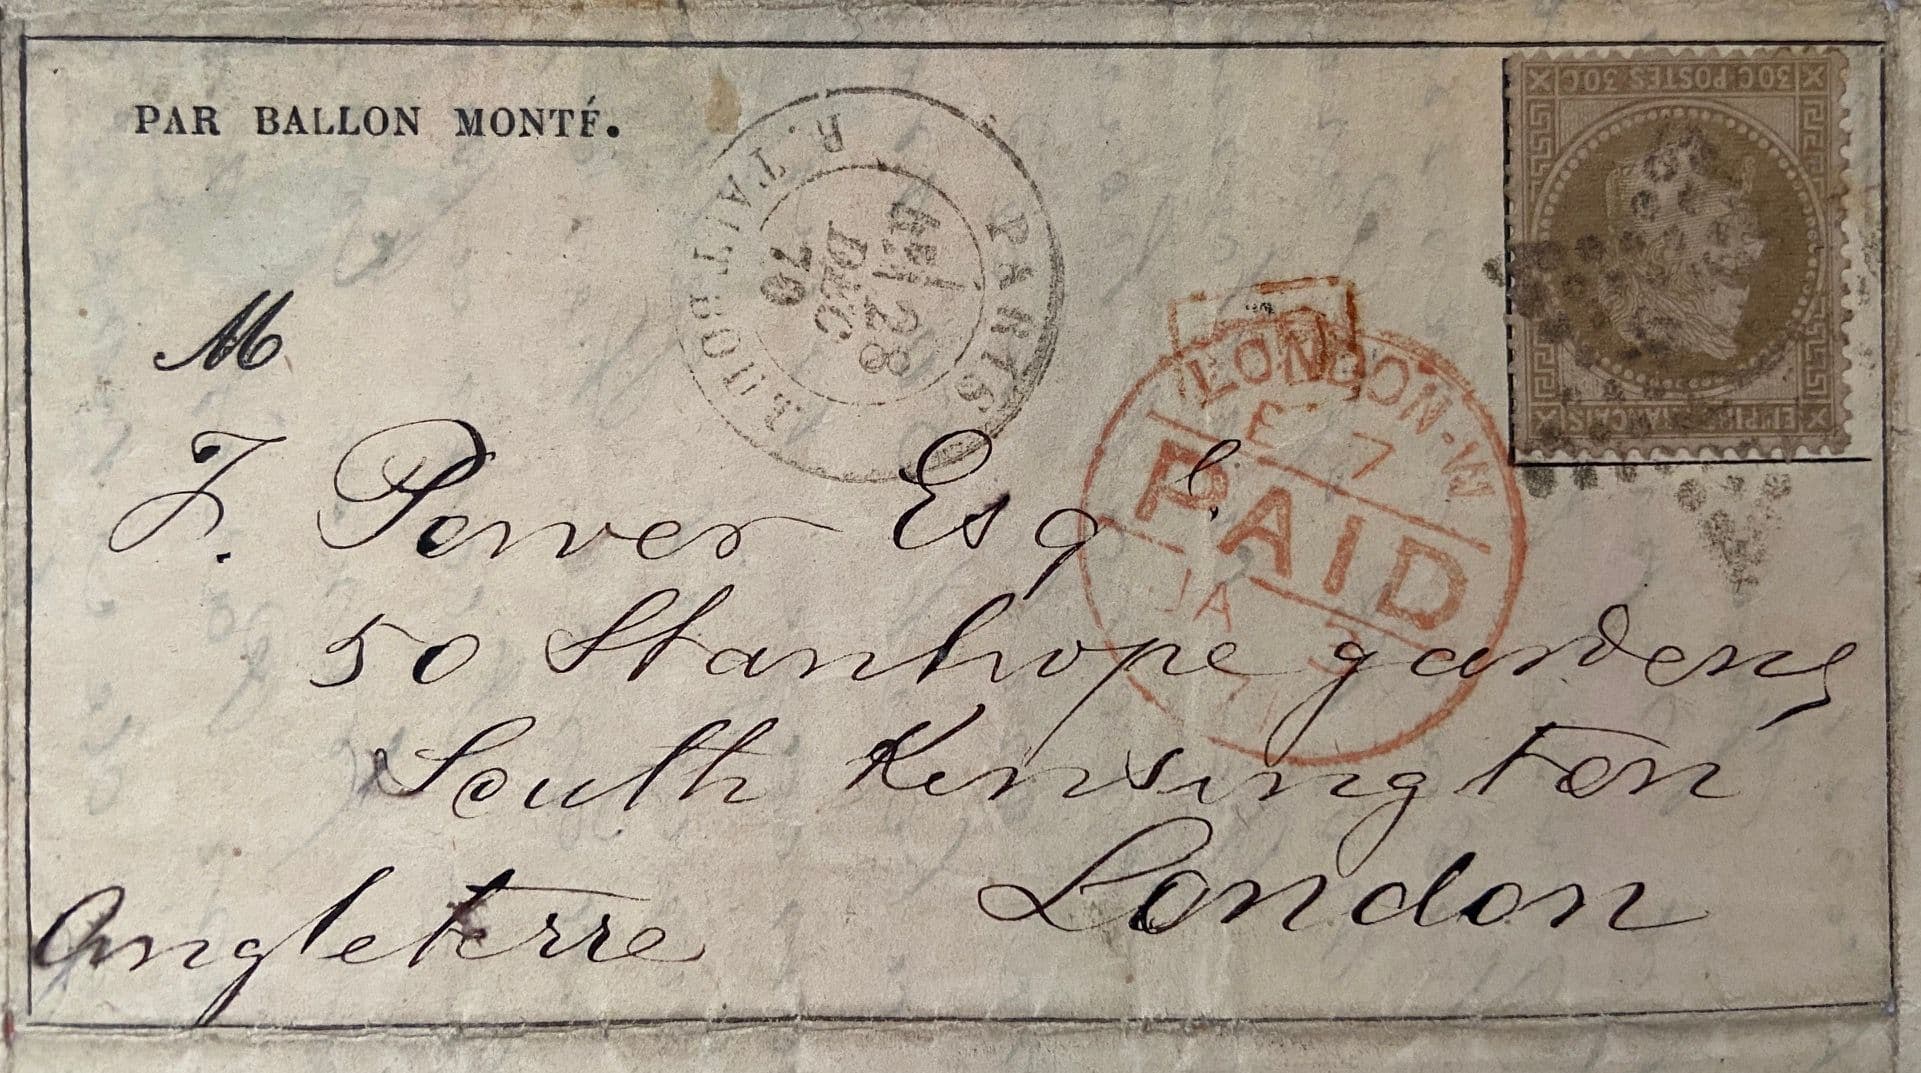 PAR BALLON MONTÉ.
PARIS
R. TAITBOUT
28
DEC
70
30C POSTES 30C
EMPIRE FRANCAIS
LONDON-W
E 7
PAID
JA 3
71
M
F. Power Esqr
50 Stanhope gardens
South Kensington
London
Angleterre